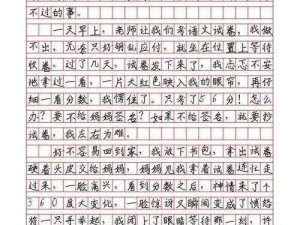 不过的事。
一天早上，老师让我们考语文试卷，我做
不出，无奈只好胡乱应付，就坐在位置上等待
收卷。过了几天，试卷发下来了，我忐忑不安
地拿过一看，一片大红色映入我的眼帘，再仔
细一看分数，我愣住了。只考了56分！怎么
办？要不给妈妈签名？如果不给签名，就要抄
试卷，我左右为难。
好不容易回到家，我放下书包，拿出试卷
硬着头皮交给妈妈妈妈见我拿着试卷连忙走
过来，一脸高兴，看到分数之后，神情来了个
360度大变化，一脸惊讶又瞬间变成了愤怒
将一只手举起，我闭上了眼睛等待那一刻，许